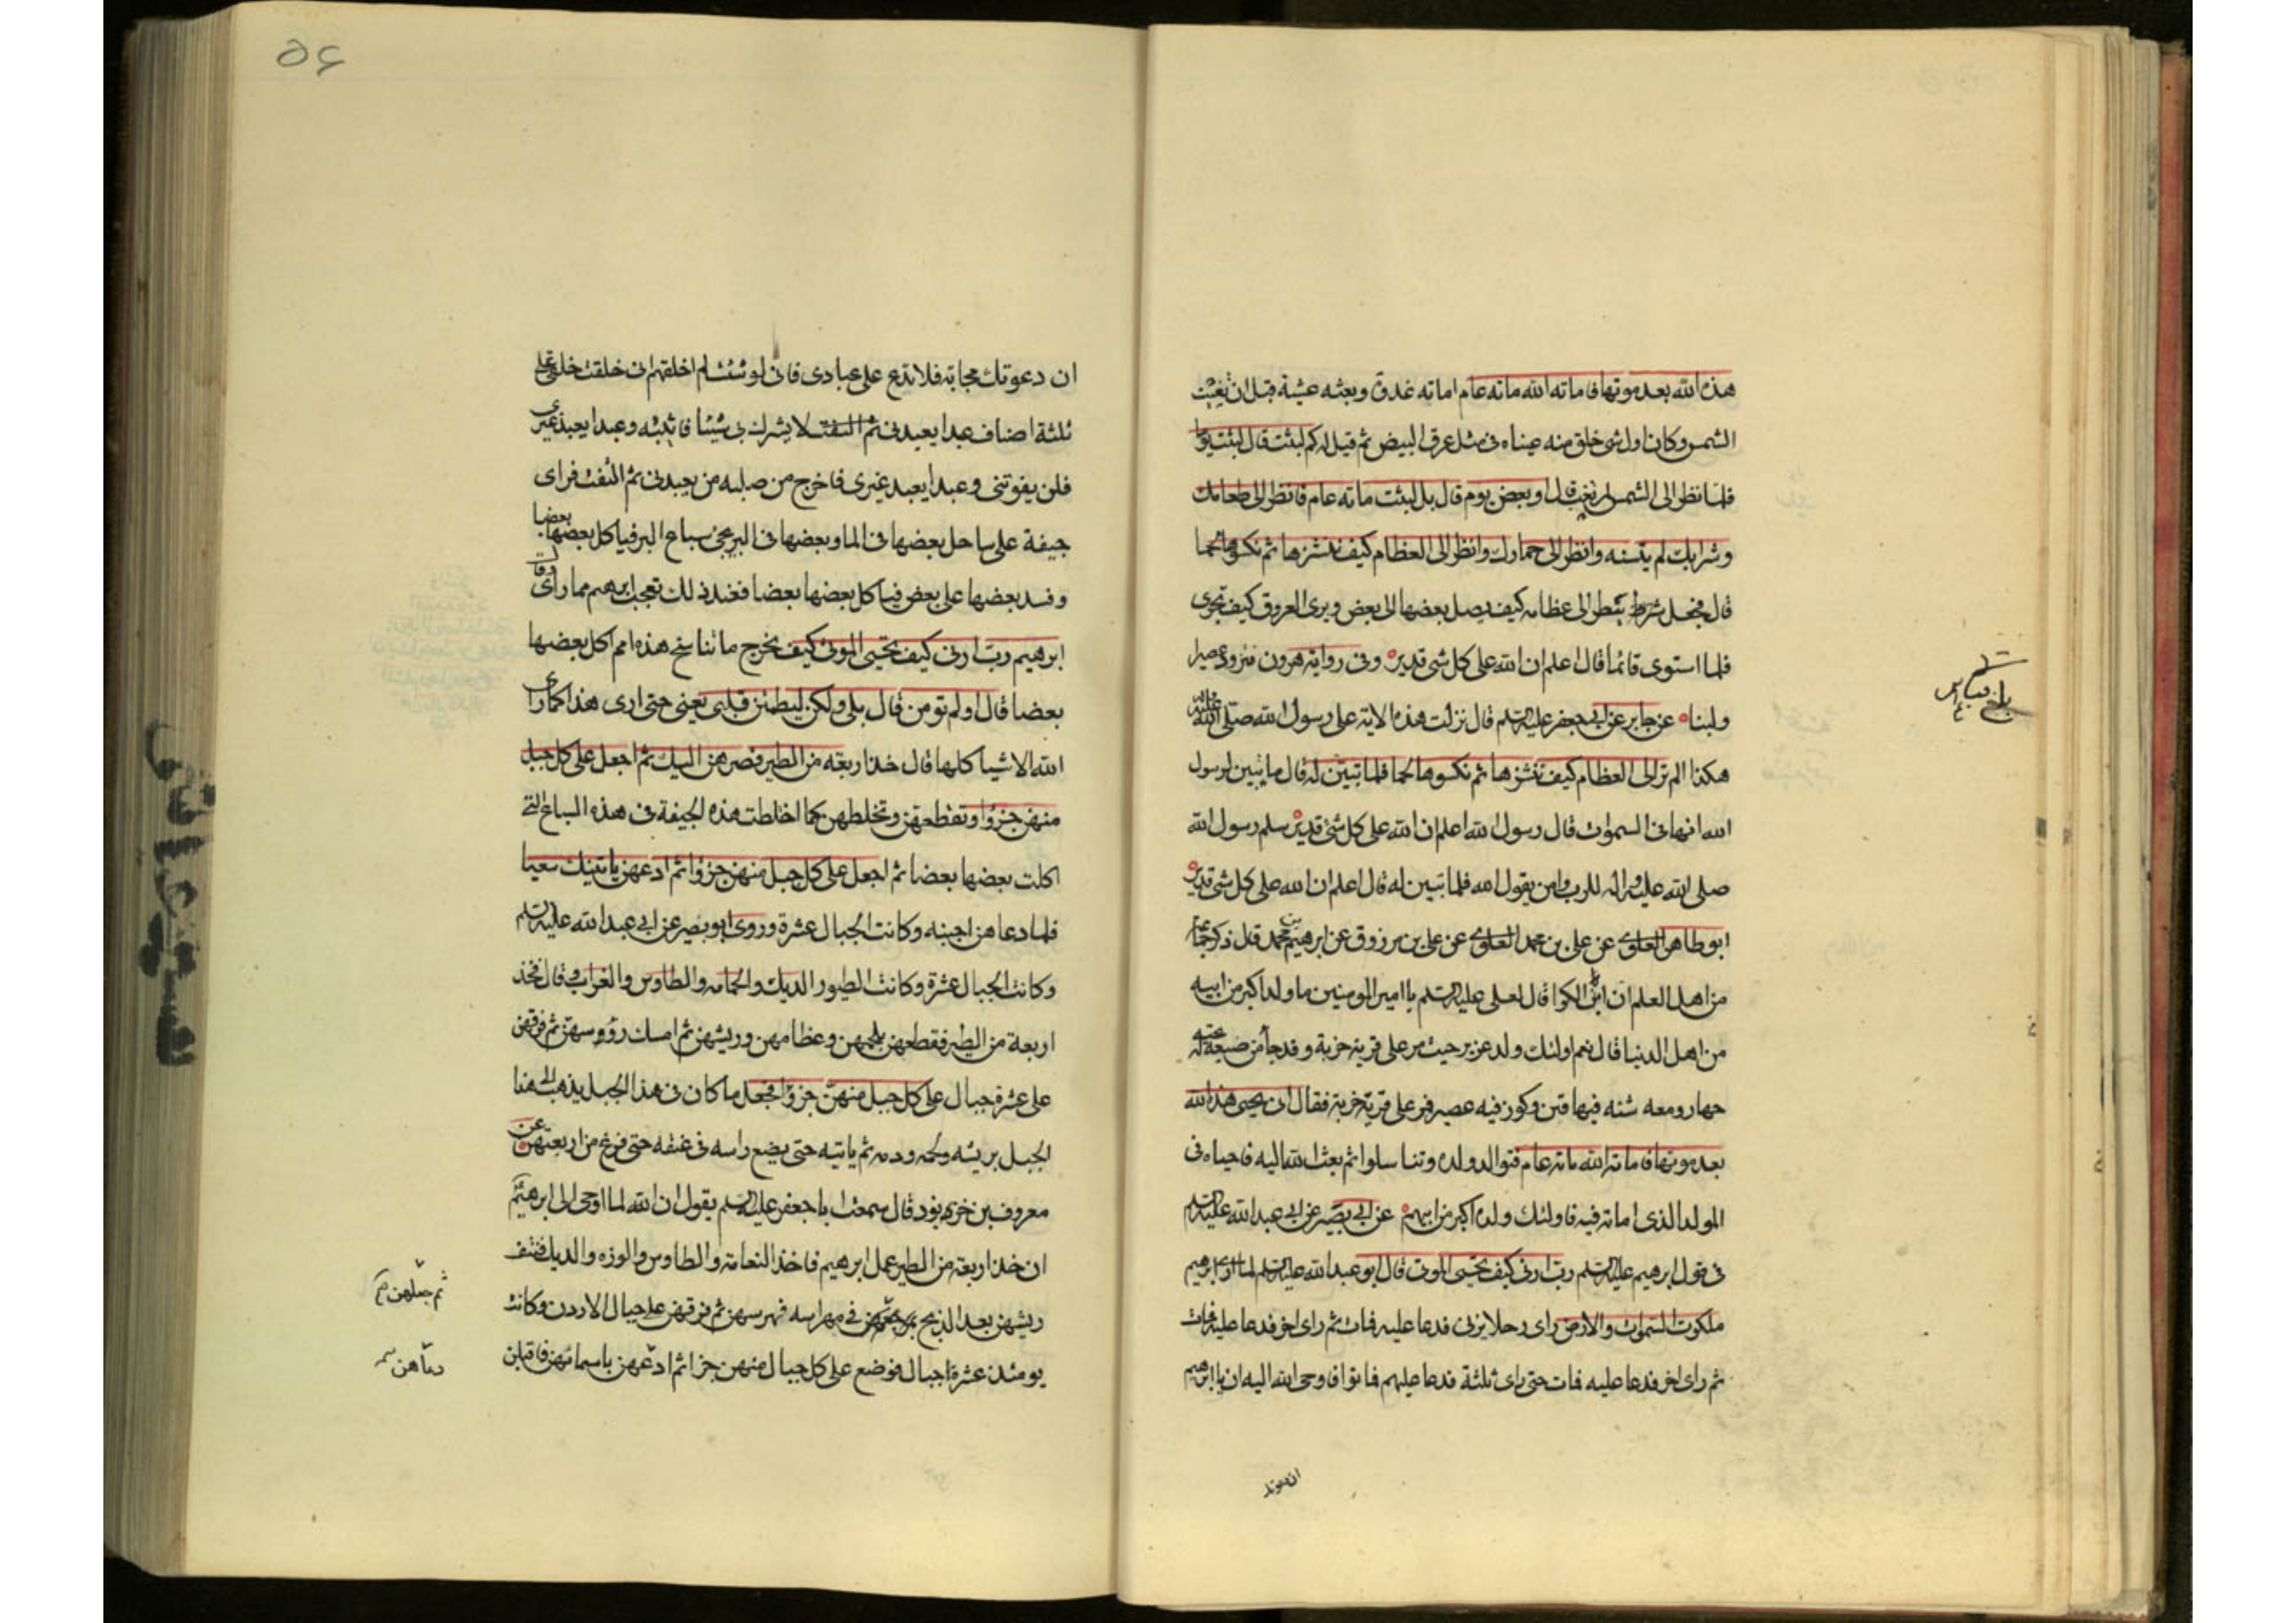 هذه الله بعد موتها فاماته الله مائه عام اماته غدوة وبعثه عشية قبل ان تغيب
الشمس وكان اول شى خلق منه عيناه فى مثل غرقى البيض ثم قيل له كم لبثت قال لبثت يوما
فلما نظر الى الشمس لم تغب قال او بعض يوم قال بل لبثت مائه عام فانظر الى طعامك
وشرابك لم يتسنه وانظر الى حمارك وانظر الى العظام كيف ننشزها ثم نكسوها لحما
قال فجعل ينظر الى عظامه كيف يصل بعضها الى بعض ويرى العروق كيف تجرى
فلما استوى قائما قال اعلم ان الله على كل شى قدير وفى رواية هرون فتزود عصيرا
ولبنا عن جابر عن ابى جعفر عليه السلم قال نزلت هذه الاية على رسول الله صلى الله عليه واله
هكذا الم تر الى العظام كيف ننشزها ثم نكسوها لحما فلما تبين له قال ما تبين لرسول
الله انها فى السموات قال رسول الله اعلم ان الله على كل شى قدير سلم رسول الله
صلى الله عليه واله للرب وامن بقول الله فلما تبين له قال اعلم ان الله على كل شى قدير
ابو طاهر العلوى عن على بن محمد العلوى عن على بن مرزوق عن ابرهيم بن محمد قال ذكر جماعة
من اهل العلم ان ابن الكوا قال لعلى عليه السلم يا امير المومنين ما ولد اكبر من ابيه
من اهل الدنيا قال نعم اولئك ولد عزير حيث مر على قرية خربة وقد جا من ضيعة له تحته
حمار ومعه شنه فيها تين وكوز فيه عصير فمر على قرية خربة فقال انى يحيى هذه الله
بعد موتها فاماته الله مائة عام فتوالد ولده وتناسلوا ثم بعث الله اليه فاحياه فى
المولد الذى اماته فيه فاولئك ولده اكبر من ابيهم عن ابى بصير عن ابى عبد الله عليه السلم
فى قول ابرهيم عليه السلم رب ارنى كيف تحيى الموتى قال ابو عبد الله عليه السلم لما ارى ابرهيم
ملكوت السموات والارض راى رجلا يزنى فدعا عليه فمات ثم راى اخر فدعا عليه فمات
ثم راى اخر فدعا عليه فمات حتى راى ثلثة فدعا عليهم فماتوا فاوحى الله اليه ان يا ابرهيم
ان دعوتك
ان دعوتك مجابة فلا تدع على عبادى فانى لو شئت لم اخلقهم انى خلقت خلقى على
ثلثة اصناف عبدا يعبدنى لا يشرك بى شيئا فاثيبه وعبدا يعبد غيرى
فلن يفوتنى وعبدا يعبد غيرى فاخرج من صلبه من يعبدنى ثم التفت فراى
جيفة على ساحل بعضها فى الما وبعضها فى البر تجى سباع البر فياكل بعضها بعضا
وفسد بعضها على بعض فياكل بعضها بعضا فعند ذلك تعجب ابرهيم مما راى وقال
ابرهيم رب ارنى كيف تحيى الموتى كيف تخرج ما تناسخ هذه امم اكل بعضها
بعضا قال اولم تومن قال بلى ولكن ليطمئن قلبى يعنى حتى ارى هذا كما راى
الله الاشيا كلها قال خذ اربعة من الطير فصرهن اليك ثم اجعل على كل جبل
منهن جزؤا وتقطعهن وتخلطهن كما اختلطت هذه الجيفة فى هذه السباع التى
اكلت بعضها بعضا ثم اجعل على كل جبل منهن جزؤا ثم ادعهن ياتينك سعيا
فلما دعاهن اجبنه وكانت الجبال عشرة وروى ابو بصير عن ابى عبد الله عليه السلم
وكانت الجبال عشرة وكانت الطيور الديك والحمامه والطاوس والغراب وقال فخذ
اربعة من الطير فقطعهن بلحمهن وعظامهن وريشهن ثم امسك رؤوسهن ثم فرقهن
على عشرة جبال على كل جبل منهن جزؤا فجعل ما كان فى هذا الجبل يذهب الى هذا
الجبل بريشه ولحمه ودمه ثم ياتيه حتى يضع راسه فى عنقه حتى فرغ من اربعتهن عن
معروف بن خربوذ قال سمعت ابا جعفر عليه السلم يقول ان الله لما اوحى الى ابرهيم
ان خذ اربعة من الطير عمل ابرهيم فاخذ النعامة والطاوس والوزه والديك فنتف
ريشهن بعد الذبح ثم جعلهن فى مهراسه فهرسهن ثم فرقهن على جبال الاردن وكانت
يومئذ عشرة اجبال فوضع على كل جبال منهن جزا ثم ادعهن باسمائهن فاقبلن
ثم جعلهن
دعاهن